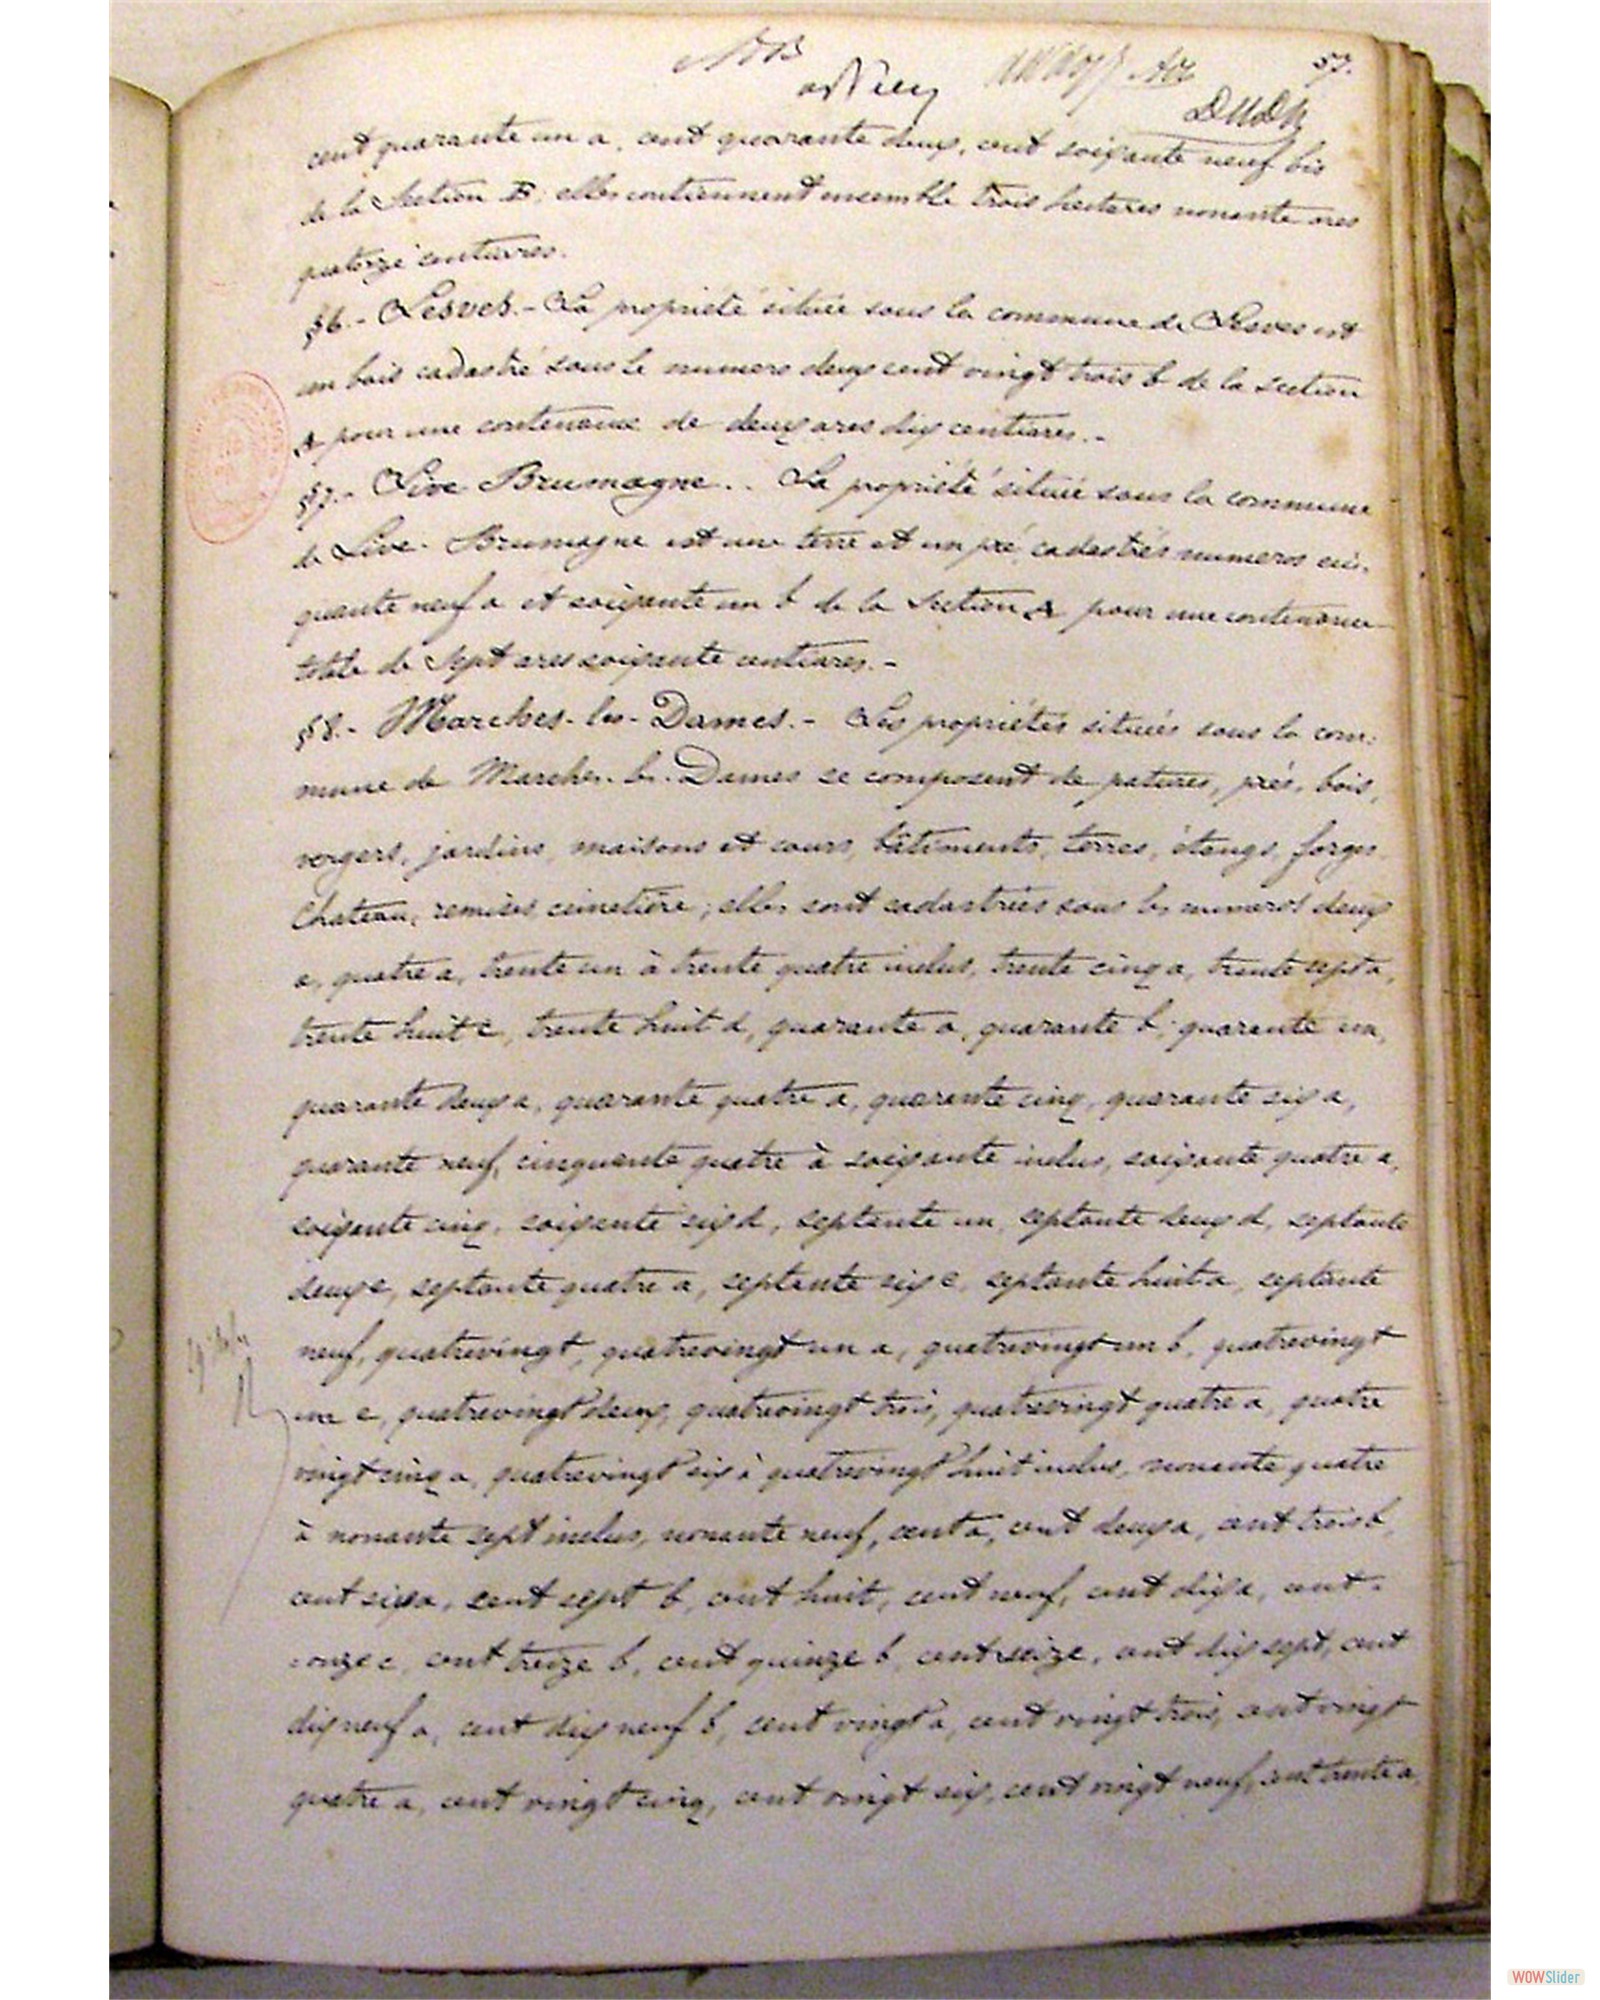 57.
cent quarante un a, cent quarante deux, cent soixante neuf bis
de la Section E; elles contiennent ensemble trois hectares nonante ares
quatorze centiares.
§6.- Lesves.- La propriété située sous la commune de Lesves est
un bois cadastré sous le numero deux cent vingt trois b de la section
A pour une contenance de deux ares dix centiares.-
§7.- Live Brumagne.. La propriété située sous la commune
de Live-Brumagne est une terre et un pré cadastrés numeros cin-
quante neuf a et soixante un b de la Section A pour une contenance
totale de Sept ares soixante centiares.-
§8.- Marches-les-Dames.- Les propriétés situées sous la com:
mune de Marches-les-Dames se composent de patures, prés, bois,
vergers, jardins, maisons et cours, bâtiments, terres, étangs, forges
Chateau, remises, cimetière; elles sont cadastrées sous les numeros deux
a, quatre a, trente un à trente quatre inclus, trente cinq a, trente sept a,
trente huit c, trente huit d, quarante a, quarante b, quarante un,
quarante deux a, quarante quatre a, quarante cinq, quarante six a,
quarante neuf, cinquante quatre à soixante inclus, soixante quatre a,
soixante cinq, soixante six d, septante un, septante deux d, septante
deux e, septante quatre a, septante six c, septante huit a, septante
neuf, quatrevingt, quatrevingt un a, quatrevingt un b, quatrevingt
un c, quatrevingt deux, quatrevingt trois, quatrevingt quatre a, quatre
vingt cinq a, quatrevingt six à quatrevingt huit inclus, nonante quatre
à nonante sept inclus, nonante neuf, cent a, cent deux a, cent trois b,
cent six a, cent sept b, cent huit, cent neuf, cent dix a, cent
onze c, cent treize b, cent quinze b, cent seize, cent dix sept, cent
dix neuf a, cent dix neuf b, cent vingt a, cent vingt trois, cent vingt
quatre a, cent vingt cinq, cent vingt six, cent vingt neuf, cent trente a,
WOWSlider